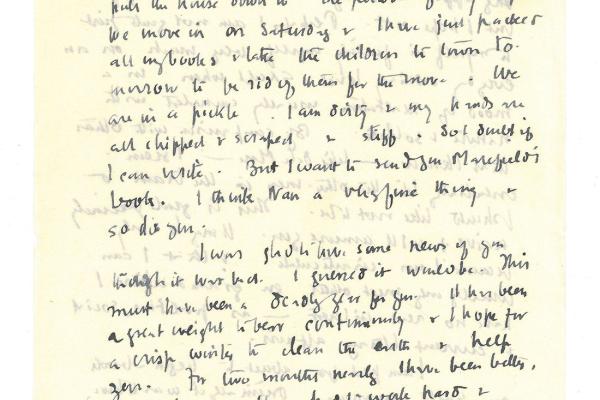 pull the house down to the
We move in on Saturday & I have just packed
all my books & take the children to town to-
morrow to be rid of them for the move. We
are in a pickle. I am dirty & my hands are
all chipped & scraped & stiff. So I doubt if
I can write. But I want to send you Masefield's
book. I think Nan a very fine thing &
so do you.
I was glad to have some news of you
though it was bad. I guessed it would be. This
must have been a deadly year for you. It has been
a great weight to bear continuously & I hope for
a crisp winter to clean the earth & help
you. For two months nearly I have been better,
work hard &